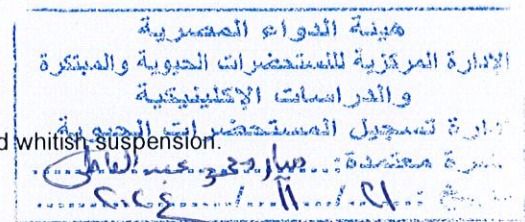 هيئة الدواء المصرية
الإدارة المركزية للمستحضرات الحيوية والمبتكرة
والدراسات الإكلينيكية
إدارة تسجيل المستحضرات الحيوية
d whitish suspension.
نشرة معتمدة:
٢١ / ١١ / ٢٠٢٤